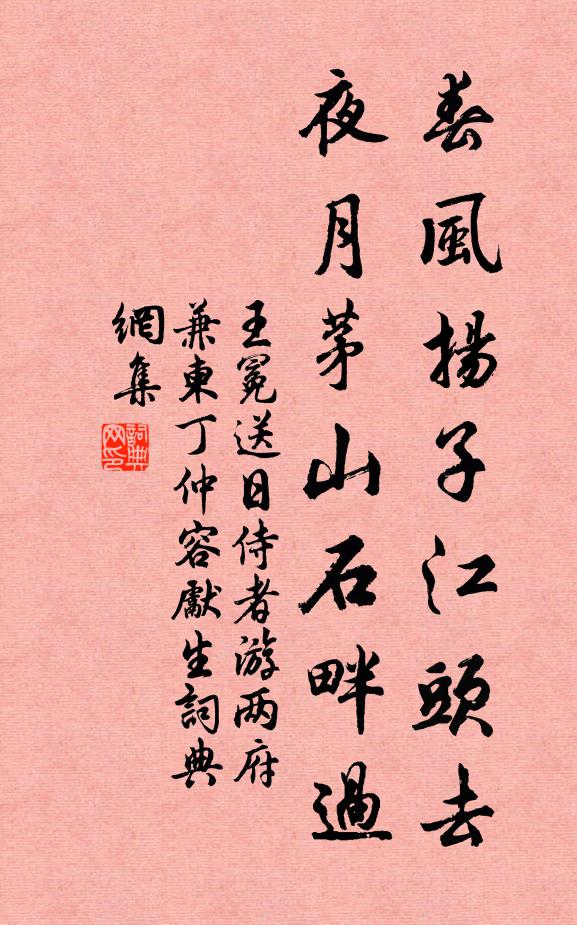 春風揚子江頭去
夜月茅山石畔過
王冕送日侍者游两府
兼東丁仲容獻生詞典
網集
詞典
网印